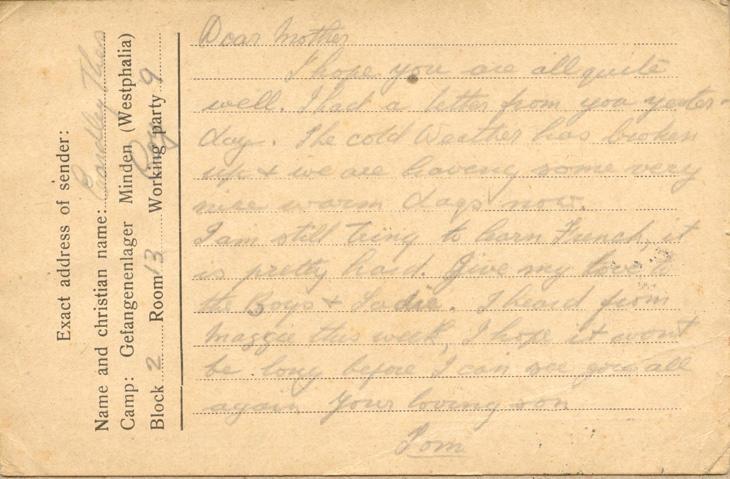 Exact address of sender:
Name and christian name: Eardley Thos
Camp: Gefangenenlager Minden (Westphalia)
Block 2 Room 13 Working party 9
Dear Mother
I hope you are all quite
well. I had a letter from you yester-
day. The cold weather has broken
up & we are having some very
nice warm days now.
I am still tring to learn French, it
is pretty hard. Give my love to
the Boys & Sadie. I heard from
Maggie this week, I hope it wont
be long before I can see you all
again Your loving son
Tom